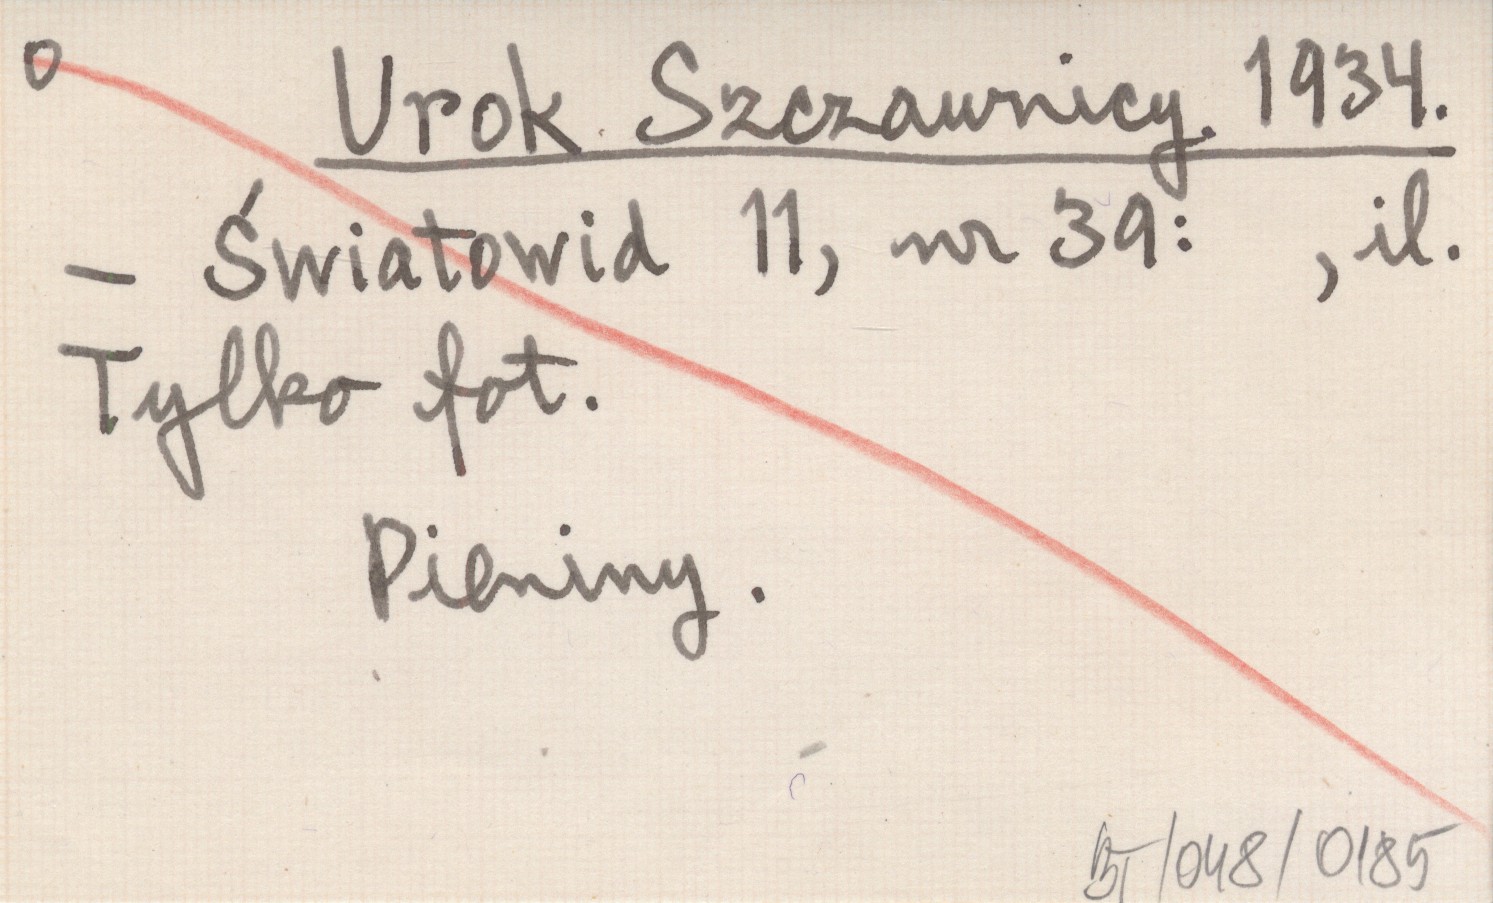 O Urok Szczawnicy. 1934.
– Światowid 11, nr 39: , il.
Tylko fot.
Pieniny.
BT/048/0185